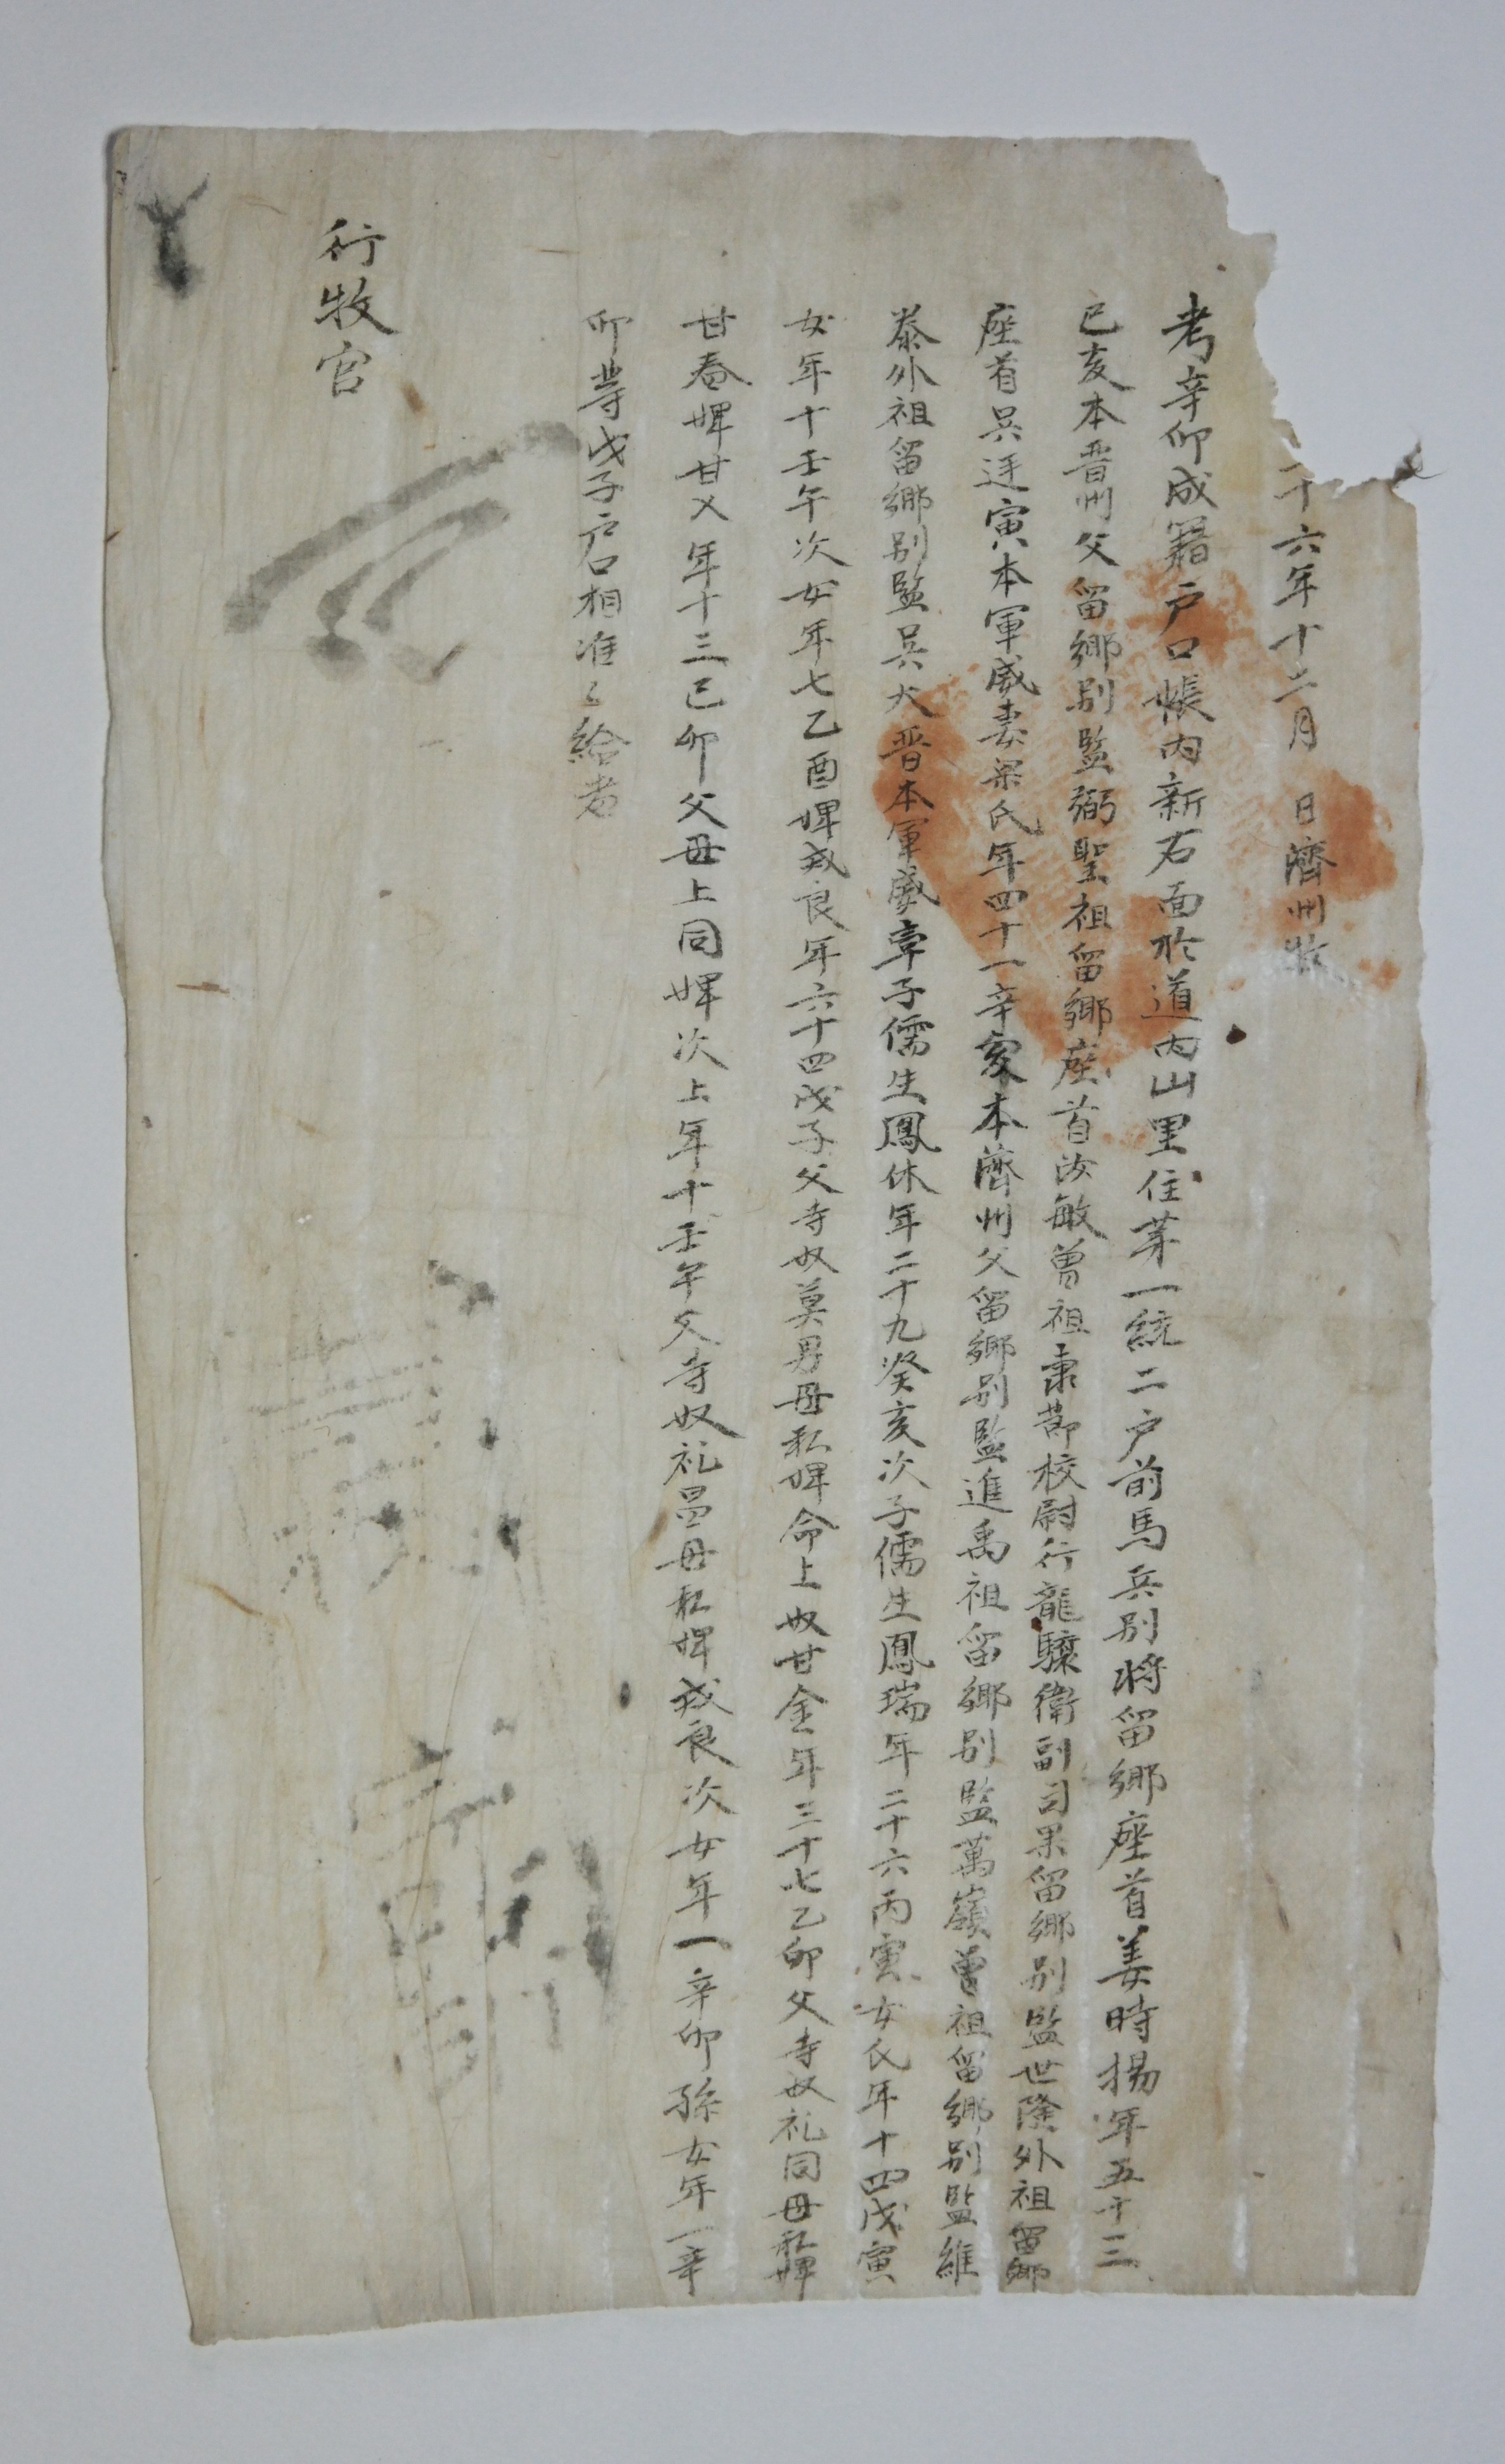 二十六年十二月 日濟州牧
考辛卯成籍戶口帳內新右面於道內山里住第一統二戶前馬兵別將留鄉座首姜時揚年五十三
己亥本晋州父留鄉別監弼聖祖留鄉座首汝敏曾祖秉節校尉行龍驤衛副司果留鄉別監世隆外祖留鄉
座首吳廷寅本軍威妻梁氏年四十一辛亥本濟州父留鄉別監進禹祖留鄉別監萬嶺曾祖留鄉別監維
泰外祖留鄉別監吳大晋本軍威率子儒生鳳休年二十九癸亥次子儒生鳳瑞年二十六丙寅女氏年十四戊寅
女年十壬午次女年七乙酉婢戎良年六十四戊子父寺奴莫男母私婢命上奴甘金年三十七乙卯父寺奴礼同母私婢
甘春婢甘乂年十三己卯父母上同婢次上年十壬午父寺奴礼昌母私婢戎良次女年一辛卯孫女年一辛
卯等戊子戶口相准之給者
行牧官